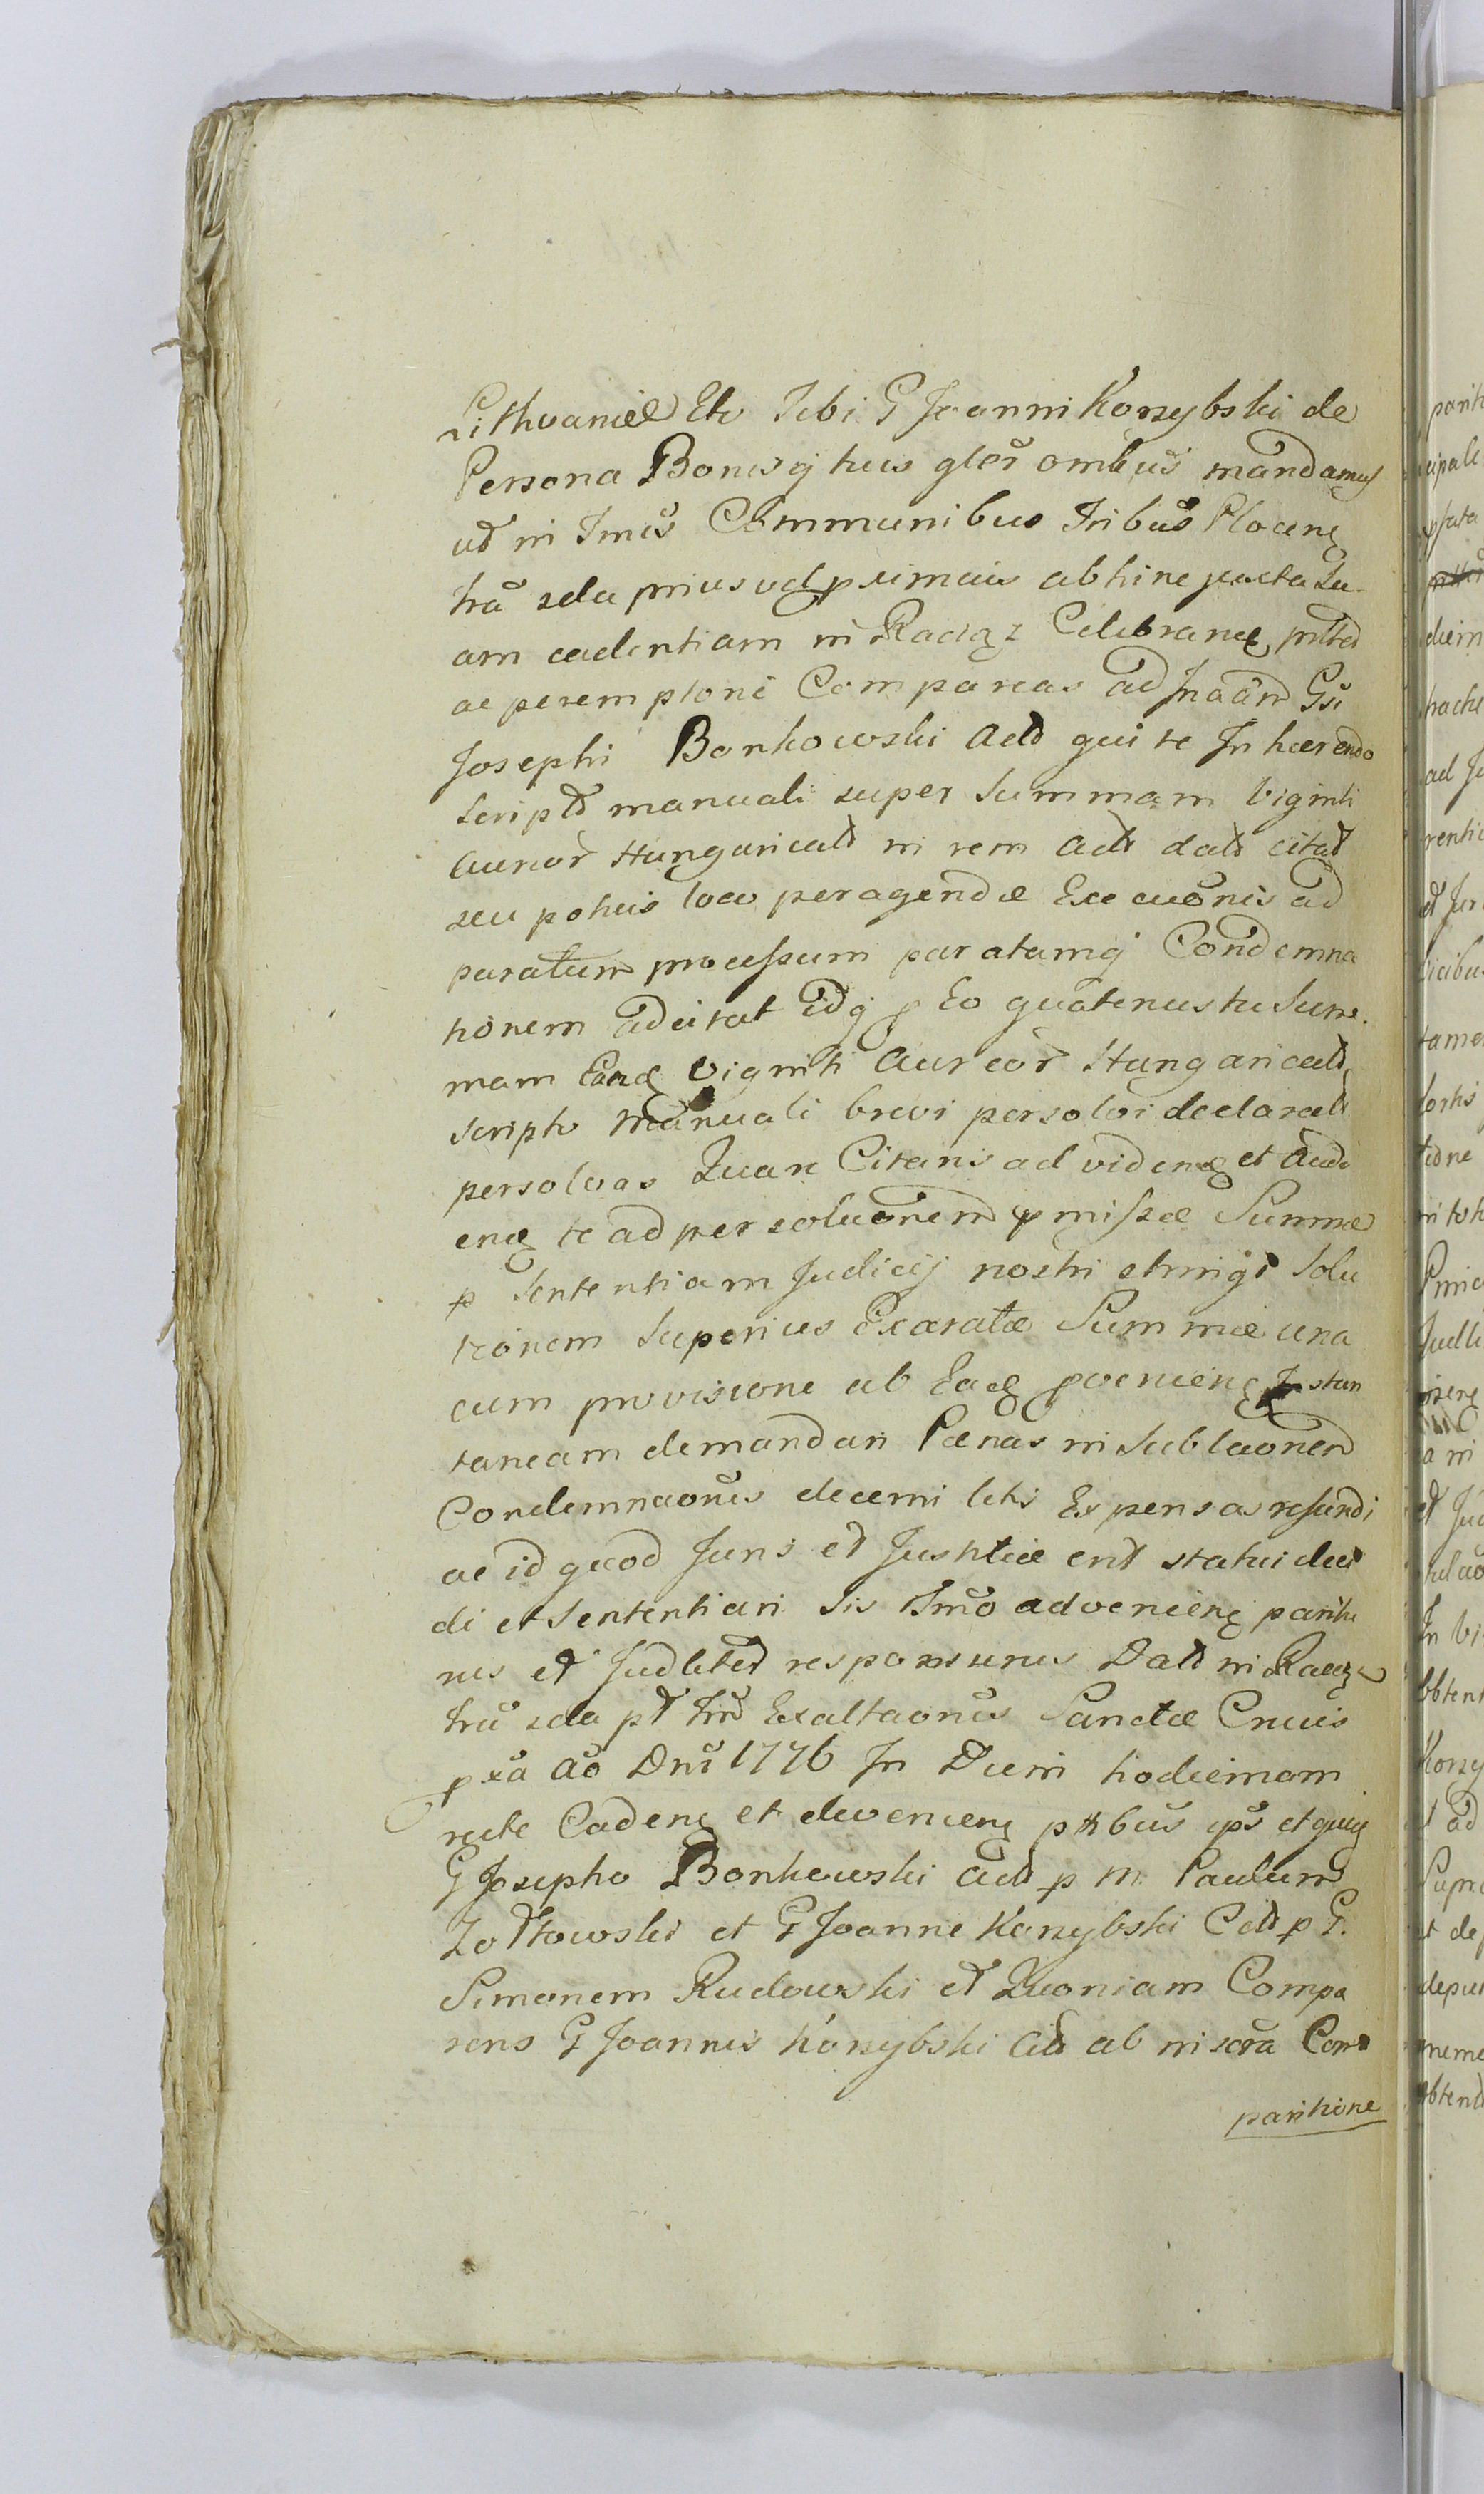 Lithvaniæ Etc Tibi G Joanni Korzybski de
Persona Bonisqj tuis gler̃ omibus mandamus
ut in Tmis Communibus Tribus Plocen
fria 2da prius vel proximius abhinc juxta su
am cadentiam in Raciąz Celebran
ac peremptorie Compareas ad Inaãm Gsi
Josephi Bonkowski Act qui te Inhærendo
Script manuali super summam Viginti
auror̃ Hungarical in rem Act dat citat
seu potius loco peragendæ Execuõnis ad
paratum processum paratamqj Condemna
tionem adcitat idqj p Eo quatenus tu Sum
mam Eand Viginti Aureor̃ Hungarical
scripto Manuali brevi persolvi declarat
persolvas Quare Citaris ad viden et Audi
en te ad persoluõnem pmissæ Summæ
p Sententiam Judicij nostri stringi Solu
tionem superius Exaratæ Summæ una
cum provisione ab Ead pvenien Instan
taneam demandari Pænas in Sublaõnem
Condemnaõnis decerni litis Expensas refundi
ac id quod Juris et Justitiæ erit statui deci
di et Sententiari Sis Tmõ advenien paritu
rus et Judliter responsurus Dat in Raciąz
fria 2da pt fm Exaltaõnis Sanctæ Crucis
pxa Aõ Dni 1776 In Diem hodiernam
recte Caden et devenien ptibus ips et quis
G Josepho Bonkowski Act p M. Paulum
Zołtowski et G Joanne Korzybski Citt p G.
Simonem Rudowski et Quoniam Compa
rens G Joannis Korzybski Citt ab in scra Com
paritione